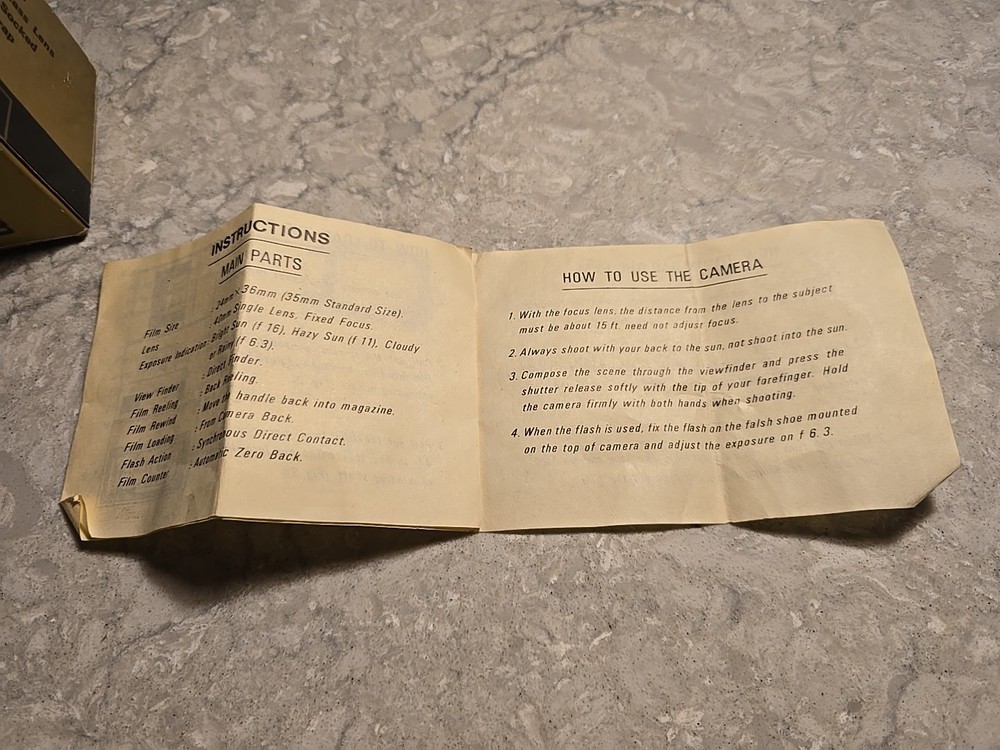 ass Lens
Socked
INSTRUCTIONS
MAIN PARTS
Film Size : 24mm×36mm (35mm Standard Size).
Lens : 40mm Single Lens, Fixed Focus.
Exposure Indication: Bright Sun (f 16), Hazy Sun (f 11), Cloudy
or Rainy (f 6.3).
View Finder : Direct Finder.
Film Reeling : Back Reeling.
Film Rewind : Move the handle back into magazine.
Film Loading : From Camera Back.
Flash Action : Synchronous Direct Contact.
Film Counter : Automatic Zero Back.
HOW TO USE THE CAMERA
1. With the focus lens, the distance from the lens to the subject
must be about 15 ft. need not adjust focus.
2. Always shoot with your back to the sun, not shoot into the sun.
3. Compose the scene through the viewfinder and press the
shutter release softly with the tip of your forefinger. Hold
the camera firmly with both hands when shooting.
4. When the flash is used, fix the flash on the falsh shoe mounted
on the top of camera and adjust the exposure on f 6.3.